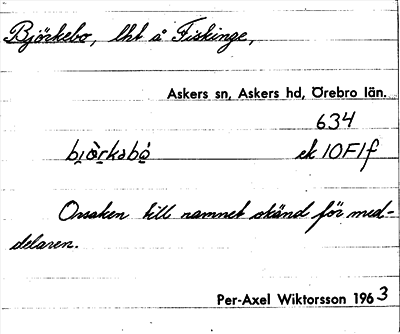 Björkebo, lht å Fiskinge,
Askers sn, Askers hd, Örebro län.
634
bi̯ò̱rkəbò̱ ek 10F1f
Orsaken till namnet okänd för med-
delaren.
Per-Axel Wiktorsson 1963